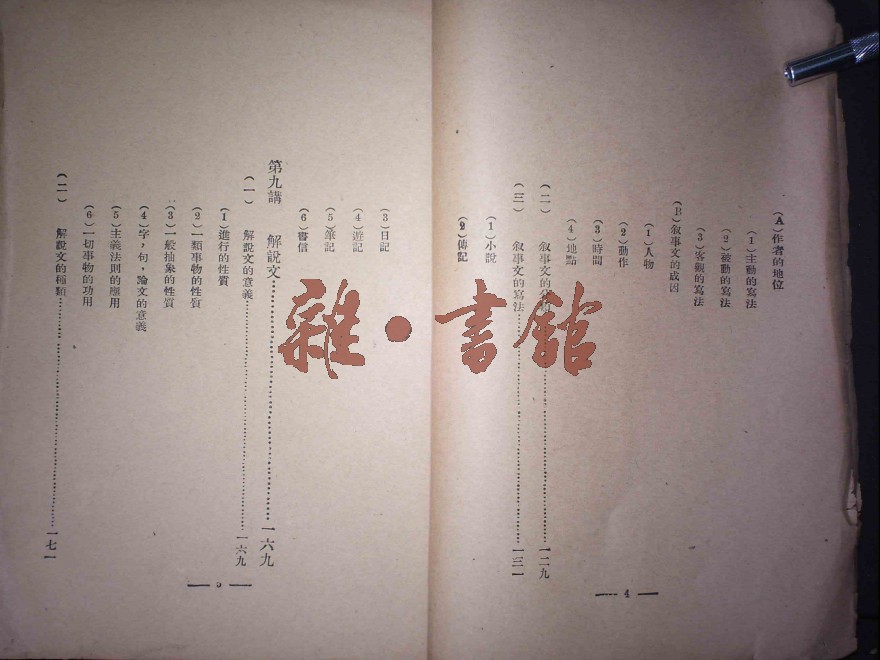 (A)作者的地位
(1)主動的寫法
(2)被動的寫法
(3)客觀的寫法
(B)叙事文的成因
(1)人物
(2)動作
(3)時間
(4)地點
(二) 叙事文的 一二九
(三) 叙事文的寫法 一三一
(1)小說
(2)傳記
— 4 —
(3)日記
(4)遊記
(5)筆記
(6)書信
第九講 解說文 一六九
(一) 解說文的意義 一六九
(1)進行的性質
(2)一類事物的性質
(3)一般抽象的性質
(4)字，句，論文的意義
(5)主義法則的應用
(6)一切事物的功用
(二) 解說文的種類 一七一
— 5 —
雜·書館